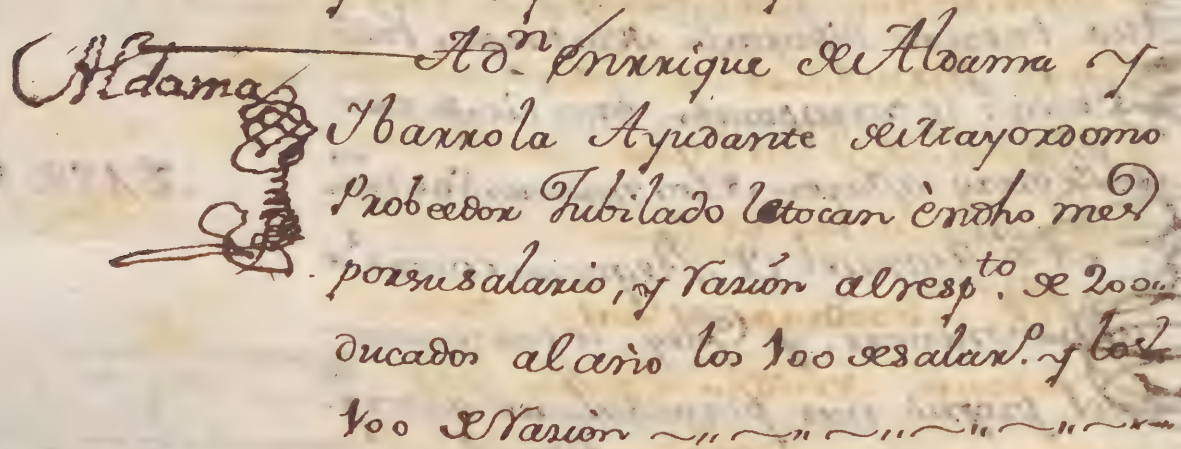 Aldama
A dn. Enrrique de Aldama y
Ybarrola Ayudante de Mayordomo
Probeedor Jubilado le tocan èn dho mes
por su salario, y razión al respto. de 200,,
ducados al año los 100 de salaro. y los
100 de razion